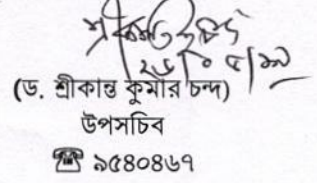 (ড. শ্রীকান্ত কুমার চন্দ)
উপসচিব
☎ ৯৫৪০৪৬৭